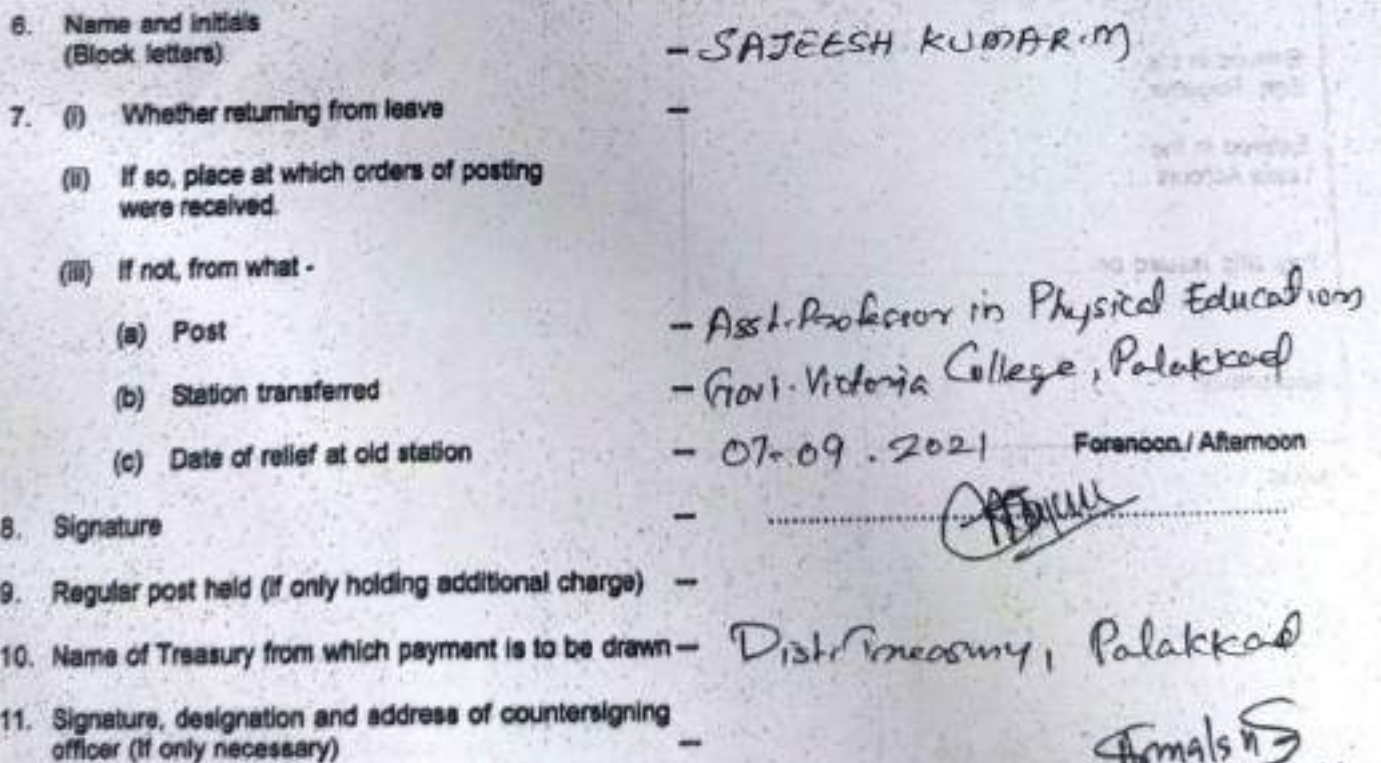 6. Name and initials
(Block letters) - SAJEESH KUMAR.M
7. (i) Whether returning from leave -
(ii) If so, place at which orders of posting
were received.
(iii) If not, from what -
(a) Post - Asst. Professor in Physical Education
(b) Station transferred - Govt. Victoria College, Palakkad
(c) Date of relief at old station - 07.09.2021 Forenoon / Afternoon
8. Signature -
9. Regular post held (if only holding additional charge) -
10. Name of Treasury from which payment is to be drawn - Dist. Treasury, Palakkad
11. Signature, designation and address of countersigning
officer (If only necessary) -